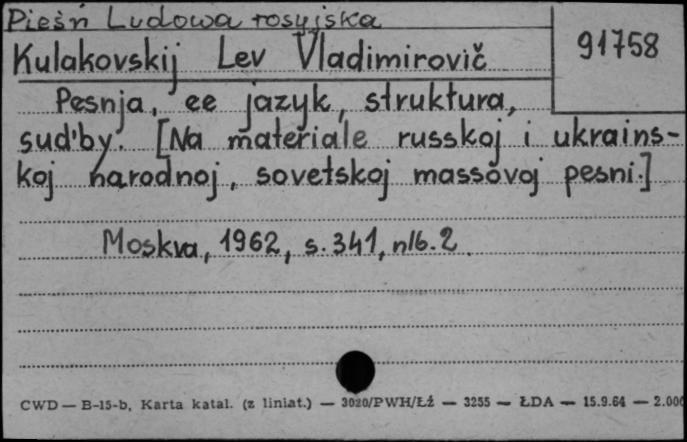 Pieśń Ludowa rosyjska
91758
Kulakovskij Lev Vladimirovič
Pesnja, ee jazyk, struktura,
sud'by. [Na materiale russkoj i ukrains-
koj narodnoj, sovetskoj massovoj pesni.]
Moskva, 1962, s. 341, nlb. 2.
CWD — B-15-b, Karta katal. (z liniat.) — 3020/PWH/Łź — 3255 — ŁDA — 15.9.64 — 2.000